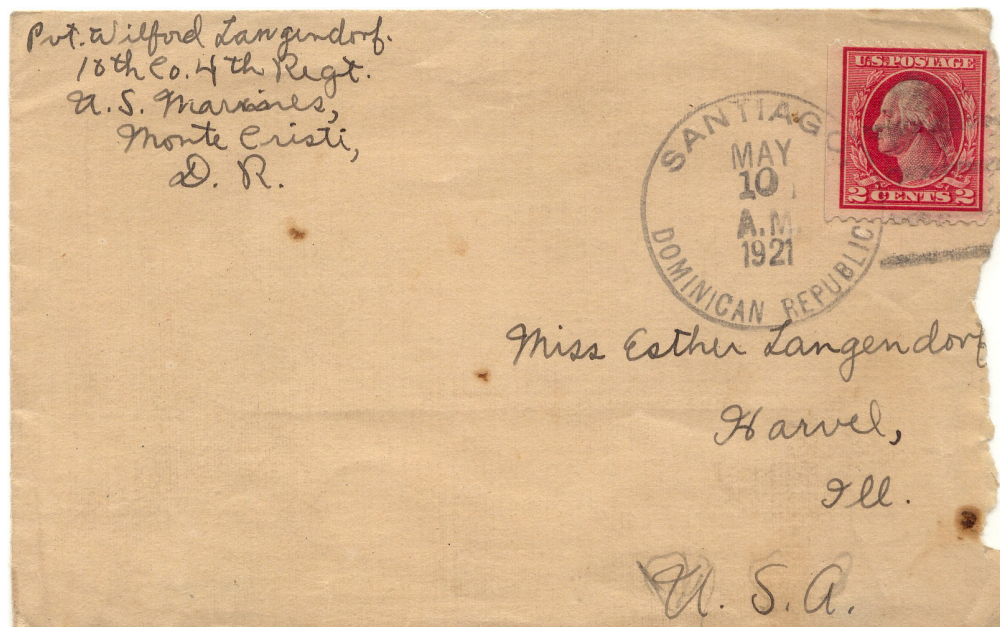 Pvt. Wilford Langendorf.
10th Co. 4th Regt.
U. S. Marines,
Monte Cristi,
D. R.
U.S. POSTAGE
2 CENTS 2
SANTIAGO
MAY
10
A.M.
1921
DOMINICAN REPUBLIC
Miss Esther Langendorf
Harvel,
Ill.
U. S. A.